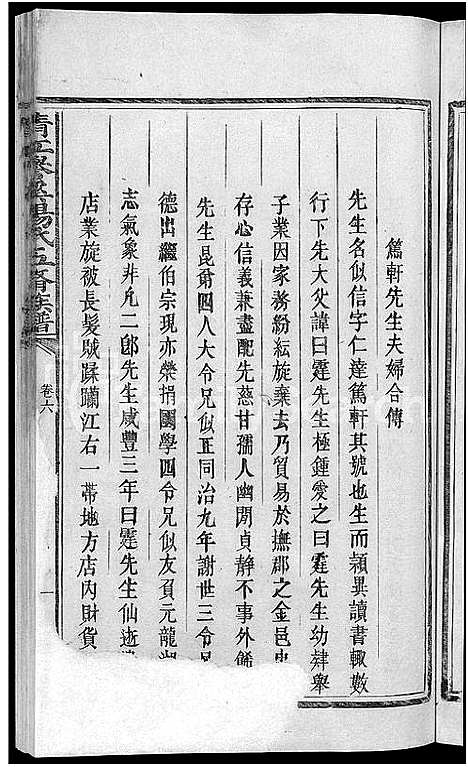 篤軒先生夫婦合傳
先生名似信字仁達篤軒其號也生而穎異讀書輙數
行下先大父諱曰霆先生極鍾愛之曰霆先生幼肄舉
子業因家務紛紜旋棄去乃貿易於撫郡之金邑
存心信義兼盡配先慈甘孺人幽閒貞静不事外飾
先生昆弟四人大令兄似正同治九年謝世三令兄
德出繼伯宗現亦榮捐國學四令兄似友頁元龍
志氣象非凡二郎先生咸豐三年曰霆先生仙逝
店業旋被長髮賊蹂躪江右一帯地方店内財貨
清江 楊氏五脩族譜
卷六
一